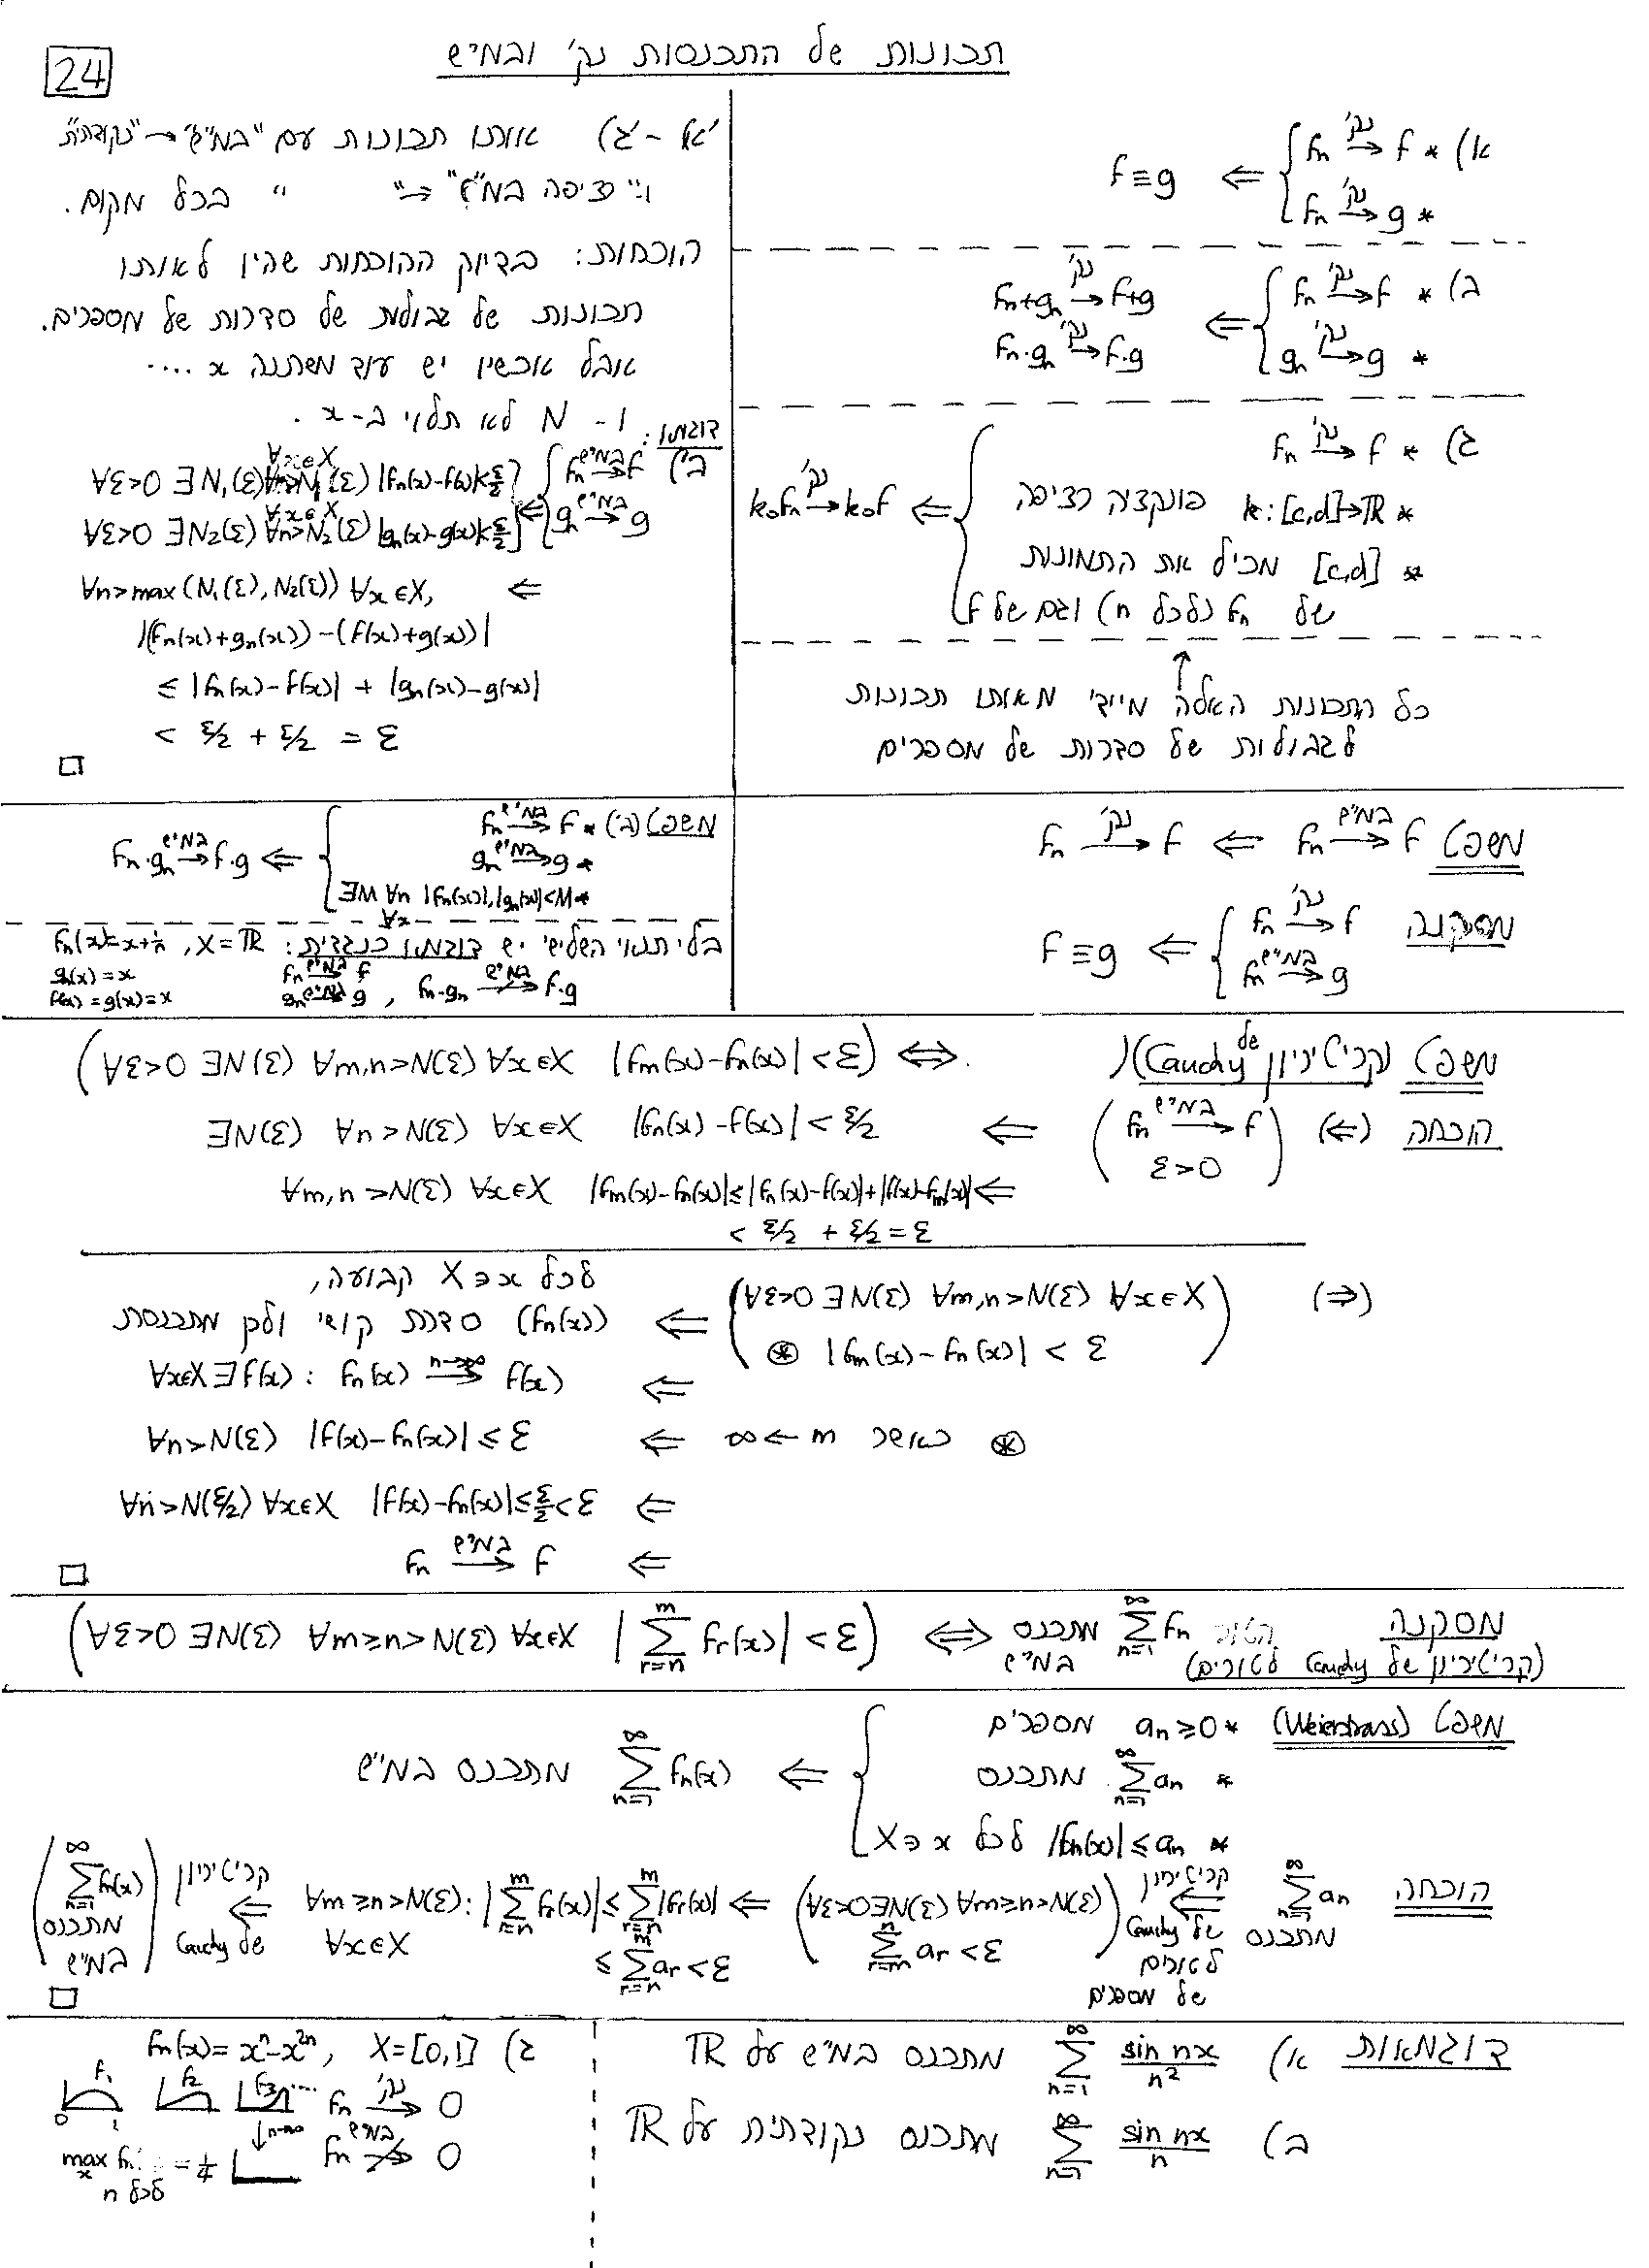 24
תכונות של התכנסות נק' ובמ"ש
א) * fₙ →(נק') f
* fₙ →(נק') g
⇐ f≡g
ב) * fₙ →(נק') f
* gₙ →(נק') g
⇐ fₙ+gₙ →(נק') f+g
fₙ·gₙ →(נק') f·g
ג) * fₙ →(נק') f
* k:[c,d]→ℝ פונקציה רציפה
* [c,d] מכיל את התמונות
של fₙ (לכל n) וגם של f
⇐ k∘fₙ →(נק') k∘f
↑
כל התכונות האלה מיידי מאותו תכונות
לגבולות של סדרות של מספרים
א' - ג') אותו תכונות עם "במ"ש" → "נקודתית"
ו"רציפה במ"ש" → " " בכל מקום.
הוכחות: בדיוק ההוכחות שהיו לאותו
תכונות של גבולות של סדרות של מספרים.
אבל עכשיו יש עוד משתנה x ....
ו - N לא תלוי ב-x.
דוגמא:
ב') { fₙ →(במ"ש) f
gₙ →(במ"ש) g
⇐ ∀ε>0 ∃N₁(ε) ∀n>N₁(ε) ∀x∈X |fₙ(x)-f(x)|<ε/2
∀ε>0 ∃N₂(ε) ∀n>N₂(ε) ∀x∈X |gₙ(x)-g(x)|<ε/2
⇐ ∀n>max(N₁(ε),N₂(ε)) ∀x∈X,
|(fₙ(x)+gₙ(x))-(f(x)+g(x))|
≤ |fₙ(x)-f(x)| + |gₙ(x)-g(x)|
< ε/2 + ε/2 = ε
□
משפט fₙ →(במ"ש) f ⇐ fₙ →(נק') f
מסקנה { fₙ →(נק') f
fₙ →(במ"ש) g
⇐ f≡g
משפט (ב') * fₙ →(במ"ש) f
* gₙ →(במ"ש) g
* ∃M ∀n ∀x |fₙ(x)|,|gₙ(x)|<M
⇐ fₙ·gₙ →(במ"ש) f·g
בלי תנאי השלישי יש דוגמא כנגדית: fₙ(x)=x+1/n, X=ℝ
gₙ(x)=x
f(x)=g(x)=x
fₙ →(במ"ש) f
gₙ →(במ"ש) g, fₙ·gₙ ↛(במ"ש) f·g
משפט (קריטריון de Cauchy)
⇔ (∀ε>0 ∃N(ε) ∀m,n>N(ε) ∀x∈X |fₘ(x)-fₙ(x)|<ε)
הוכחה (⇐) (fₙ →(במ"ש) f
ε>0) ⇐ ∃N(ε) ∀n>N(ε) ∀x∈X |fₙ(x)-f(x)|<ε/2
⇐ ∀m,n>N(ε) ∀x∈X |fₘ(x)-fₙ(x)|≤|fₙ(x)-f(x)|+|f(x)-fₘ(x)|
< ε/2 + ε/2 = ε
(⇒) (∀ε>0 ∃N(ε) ∀m,n>N(ε) ∀x∈X
⊛ |fₘ(x)-fₙ(x)| < ε)
⇐ לכל x∈X קבועה,
(fₙ(x)) סדרת קושי ולכן מתכנסת
⇐ ∀x∈X ∃f(x): fₙ(x) →(n→∞) f(x)
⊛ כאשר m→∞ ⇐ ∀n>N(ε) |f(x)-fₙ(x)| ≤ ε
⇐ ∀n>N(ε/2) ∀x∈X |f(x)-fₙ(x)|≤ε/2<ε
⇐ fₙ →(במ"ש) f
□
מסקנה הטור ∑ₙ₌₁^∞ fₙ מתכנס במ"ש ⇔ (∀ε>0 ∃N(ε) ∀m≥n>N(ε) ∀x∈X |∑ᵣ₌ₙ^m fᵣ(x)|<ε)
(קריטריון של Cauchy לטורים)
משפט (Weierstrass) * aₙ≥0 מספרים
* ∑ₙ₌₁^∞ aₙ מתכנס
* |fₙ(x)|≤aₙ לכל x∈X
⇐ ∑ₙ₌₁^∞ fₙ(x) מתכנס במ"ש
הוכחה ∑ₙ₌₁^∞ aₙ מתכנס
⇐ קריטריון של Cauchy לטורים של מספרים
(∀ε>0 ∃N(ε) ∀m≥n>N(ε)
∑ᵣ₌ₘ^n aᵣ<ε)
⇐ ∀m≥n>N(ε): |∑ᵣ₌ₙ^m fᵣ(x)|≤∑ᵣ₌ₙ^m|fᵣ(x)|
∀x∈X ≤∑ᵣ₌ₙ^m aᵣ<ε
⇐ קריטריון של Cauchy
(∑ₙ₌₁^∞ fₙ(x) מתכנס במ"ש)
□
דוגמאות א) ∑ₙ₌₁^∞ sin nx / n² מתכנס במ"ש על ℝ
ב) ∑ₙ₌₁^∞ sin nx / n מתכנס נקודתית על ℝ
ג) fₙ(x)=xⁿ-x²ⁿ, X=[0,1]
f₁ f₂ f₃ ....
0 1
fₙ →(נק') 0
↓n→∞
fₙ ↛(במ"ש) 0
max fₙ = 1/4
x
לכל n